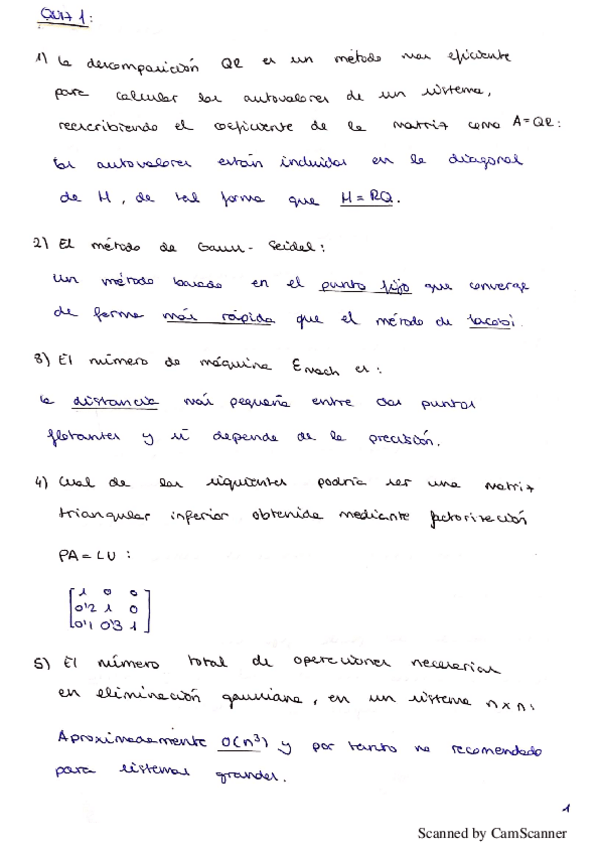 QUIZ 1:
1) La descomposición QR es un método más eficiente
para calcular los autovalores de un sistema,
reescribiendo el coeficiente de la matriz como A=QR:
los autovalores están incluidos en la diagonal
de H, de tal forma que H=RQ.
2) El método de Gauss-Seidel:
un método basado en el punto fijo que converge
de forma más rápida que el método de Jacobi.
3) El número de máquina Emach es:
la distancia más pequeña entre dos puntos
flotantes y sí depende de la precisión.
4) Cual de las siguientes podría ser una matriz
triangular inferior obtenida mediante factorización
PA=LU:
1 0 0
0'2 1 0
0'1 0'3 1
5) El número total de operaciones necesarias
en eliminación gaussiana, en un sistema nxn:
Aproximadamente O(n³) y por tanto no recomendado
para sistemas grandes.
1
Scanned by CamScanner